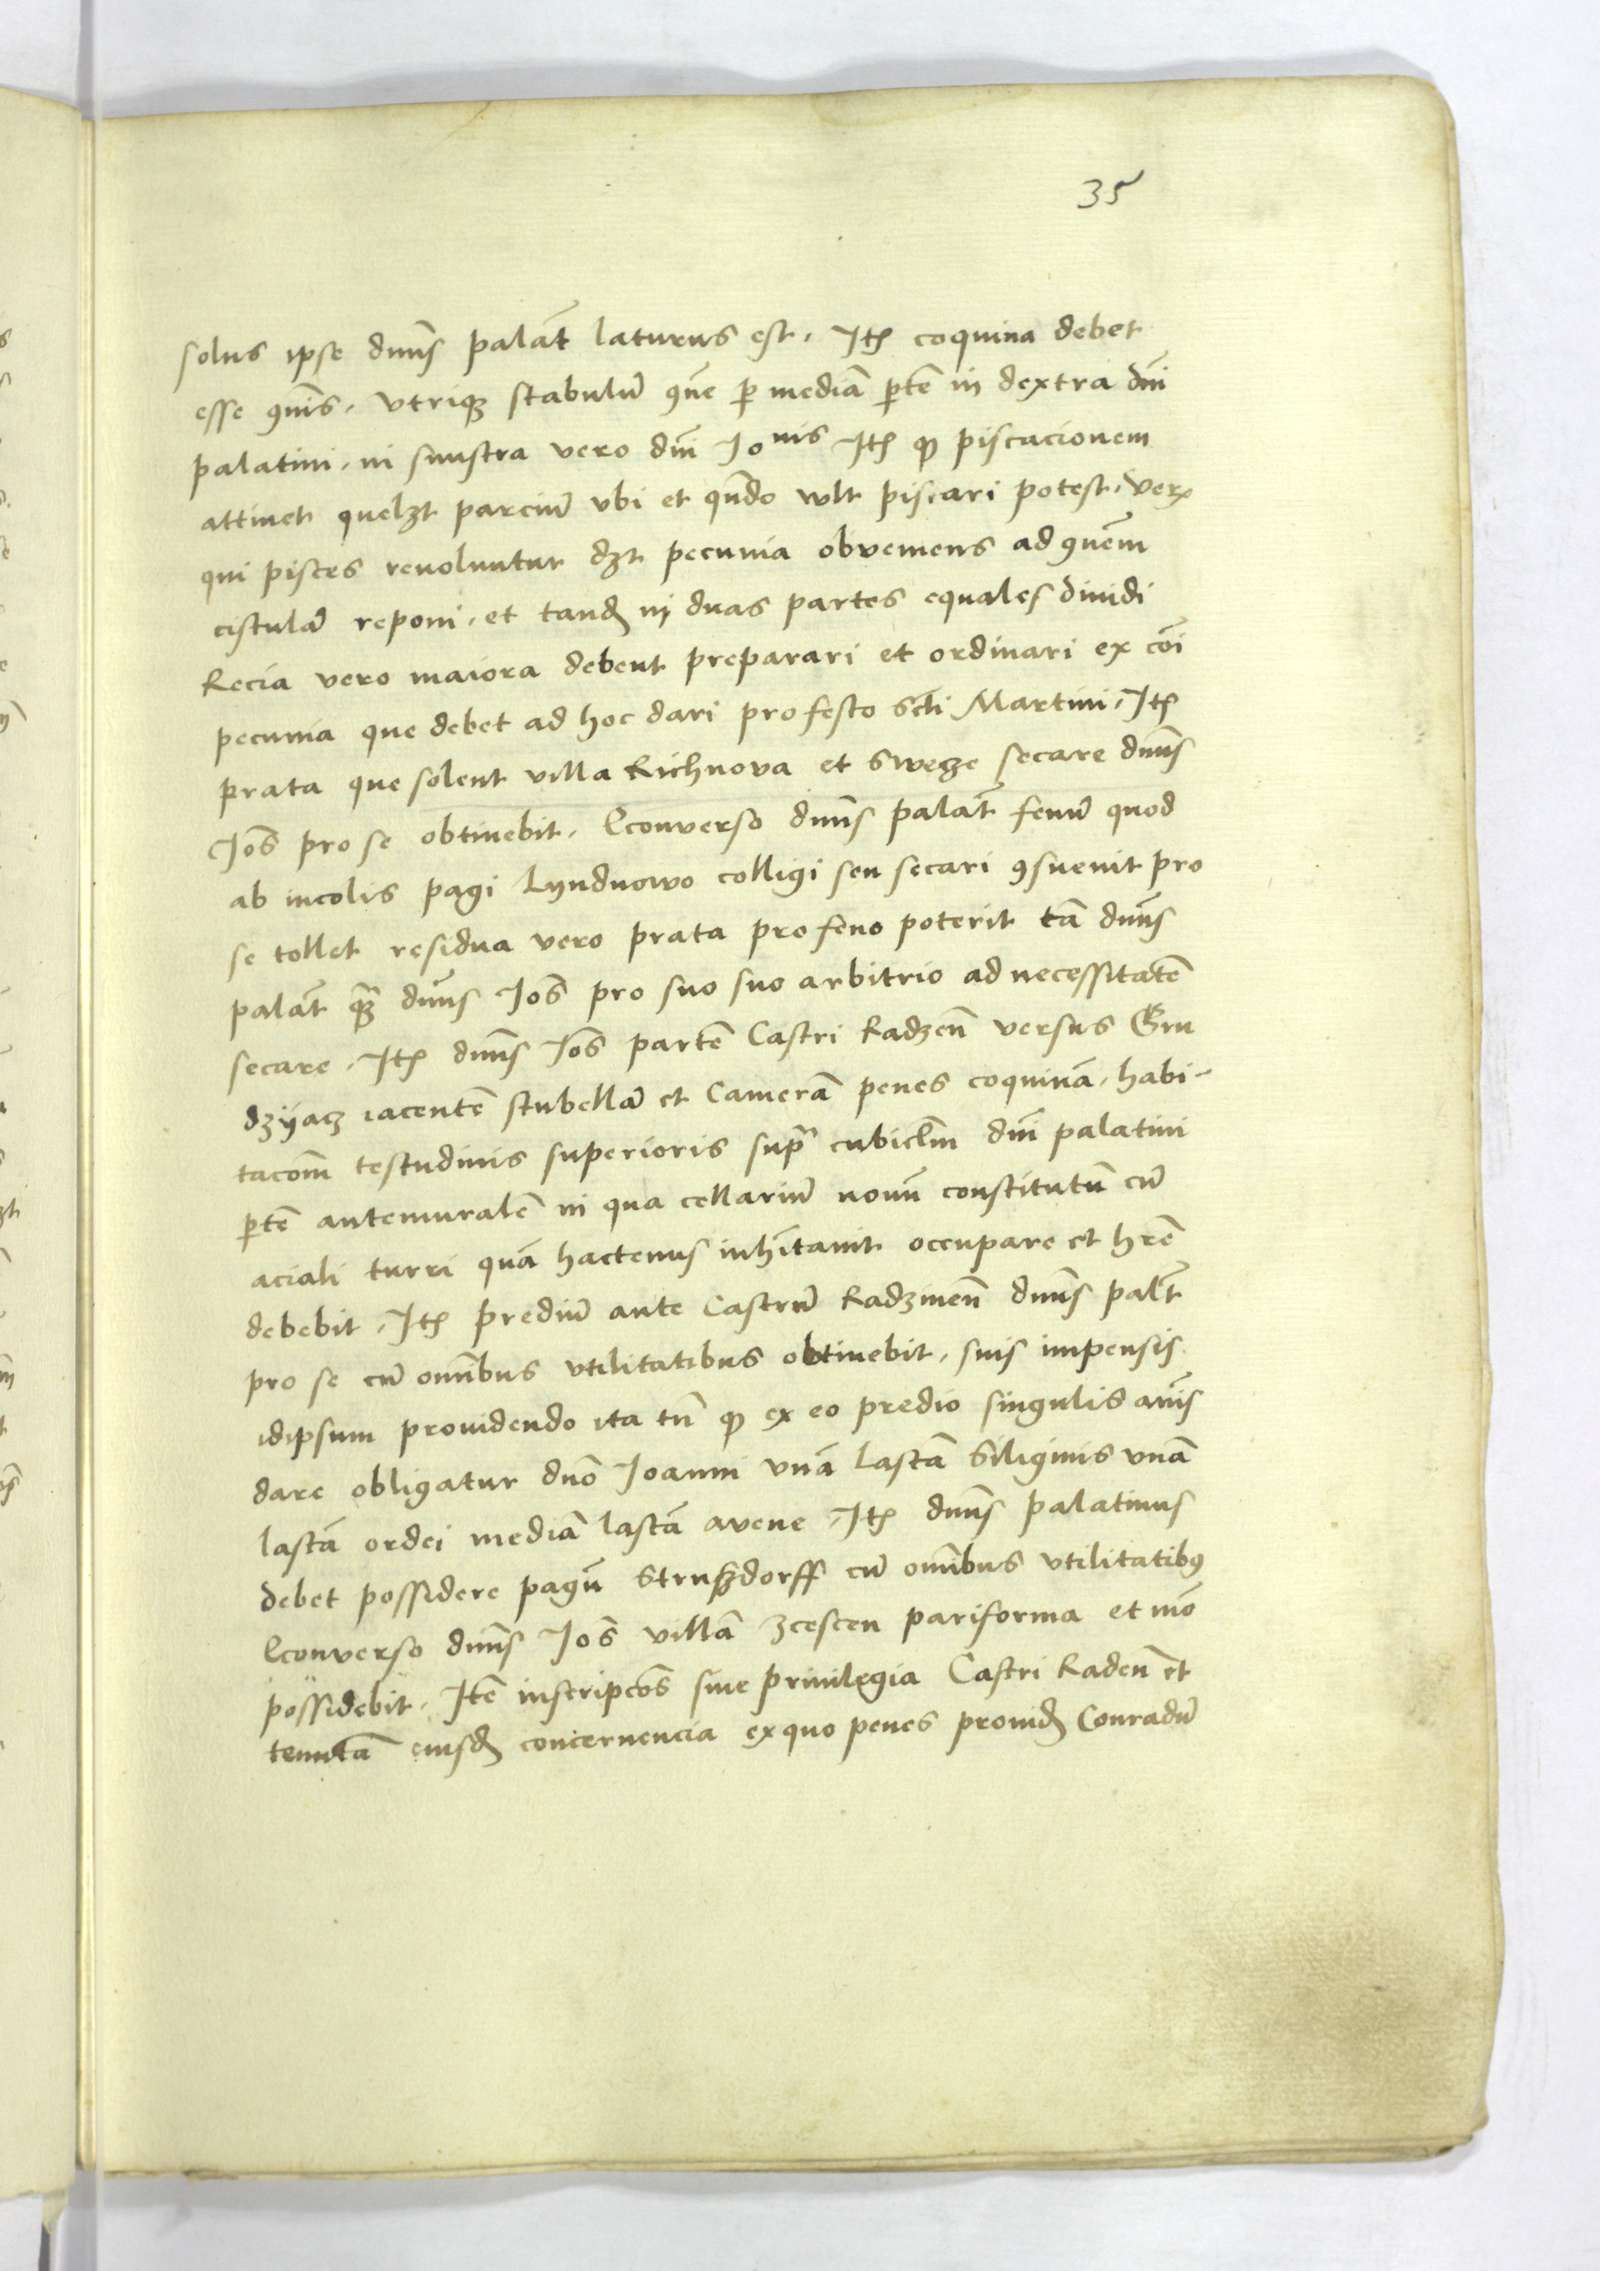 35
solus ipse dnūs palāt laturus est. Itꝫ coquina debet
esse ꝯnīs. vtriqꝫ stabulū ꝯne ꝑ mediā ꝑtē in dextra dnī
palatini. in sinistra vero dnī Ionis Itꝫ ꝙ piscacionem
attinet quelꝫt parciū vbi et qn̄do wlt piscari potest. Verꝫ
qui pisces revoluntur dꝫt pecunia obveniens ad ꝯnēm
cistulā reponi. et tandꝫ in duas partes equales diuidi
Recia vero maiora debent preparari et ordinari ex cōi
pecunia que debet ad hoc dari pro festo Scti Martini. Itꝫ
prata que solent villa Richnova et Swetze secare dnūs
Joēs pro se obtinebit. Econverso dnūs palāt fenū quod
ab incolis pagi Lyndnowo colligi seu secari ꝯsuevit pro
se tollet residua vero prata pro feno poterit tā dnūs
palāt qꝫ dnūs Joēs pro suo suo arbitrio ad necessitatē
secare. Itꝫ dnūs Joēs partē Castri Radzēn versus Gru
dzyacz iacentē stubellā et Camerā penes coquinā. habi-
tacōm testudinis superioris supra cubiclm dnī palatini
ꝑtē antemuralē in qua cellariū nouū constitutū cū
aciali turri quā hactenus inhītauit occupare et hrē
debebit. Itꝫ prediū ante Castrū Radzinēn dnūs palt
pro se cū omībus vtilitatibus obtinebit. suis impensis
idipsum prouidendo ita tn̄ ꝙ ex eo predio singulis anīs
dare obligatur dnō Joanni vnā Lastā Siliginis vnā
lastā ordei mediā lastā avene. Itꝫ dnūs palatinus
debet possidere pagū Struszdorff cū omībus vtilitatibꝯ
Econverso dnūs Joēs villā Zcescen pariforma et mō
possidebit. Itē inscripcōēs siue priuilegia Castri Radēn et
tenutā eiusdꝫ concernencia ex quo penes prouidꝫ Conradū